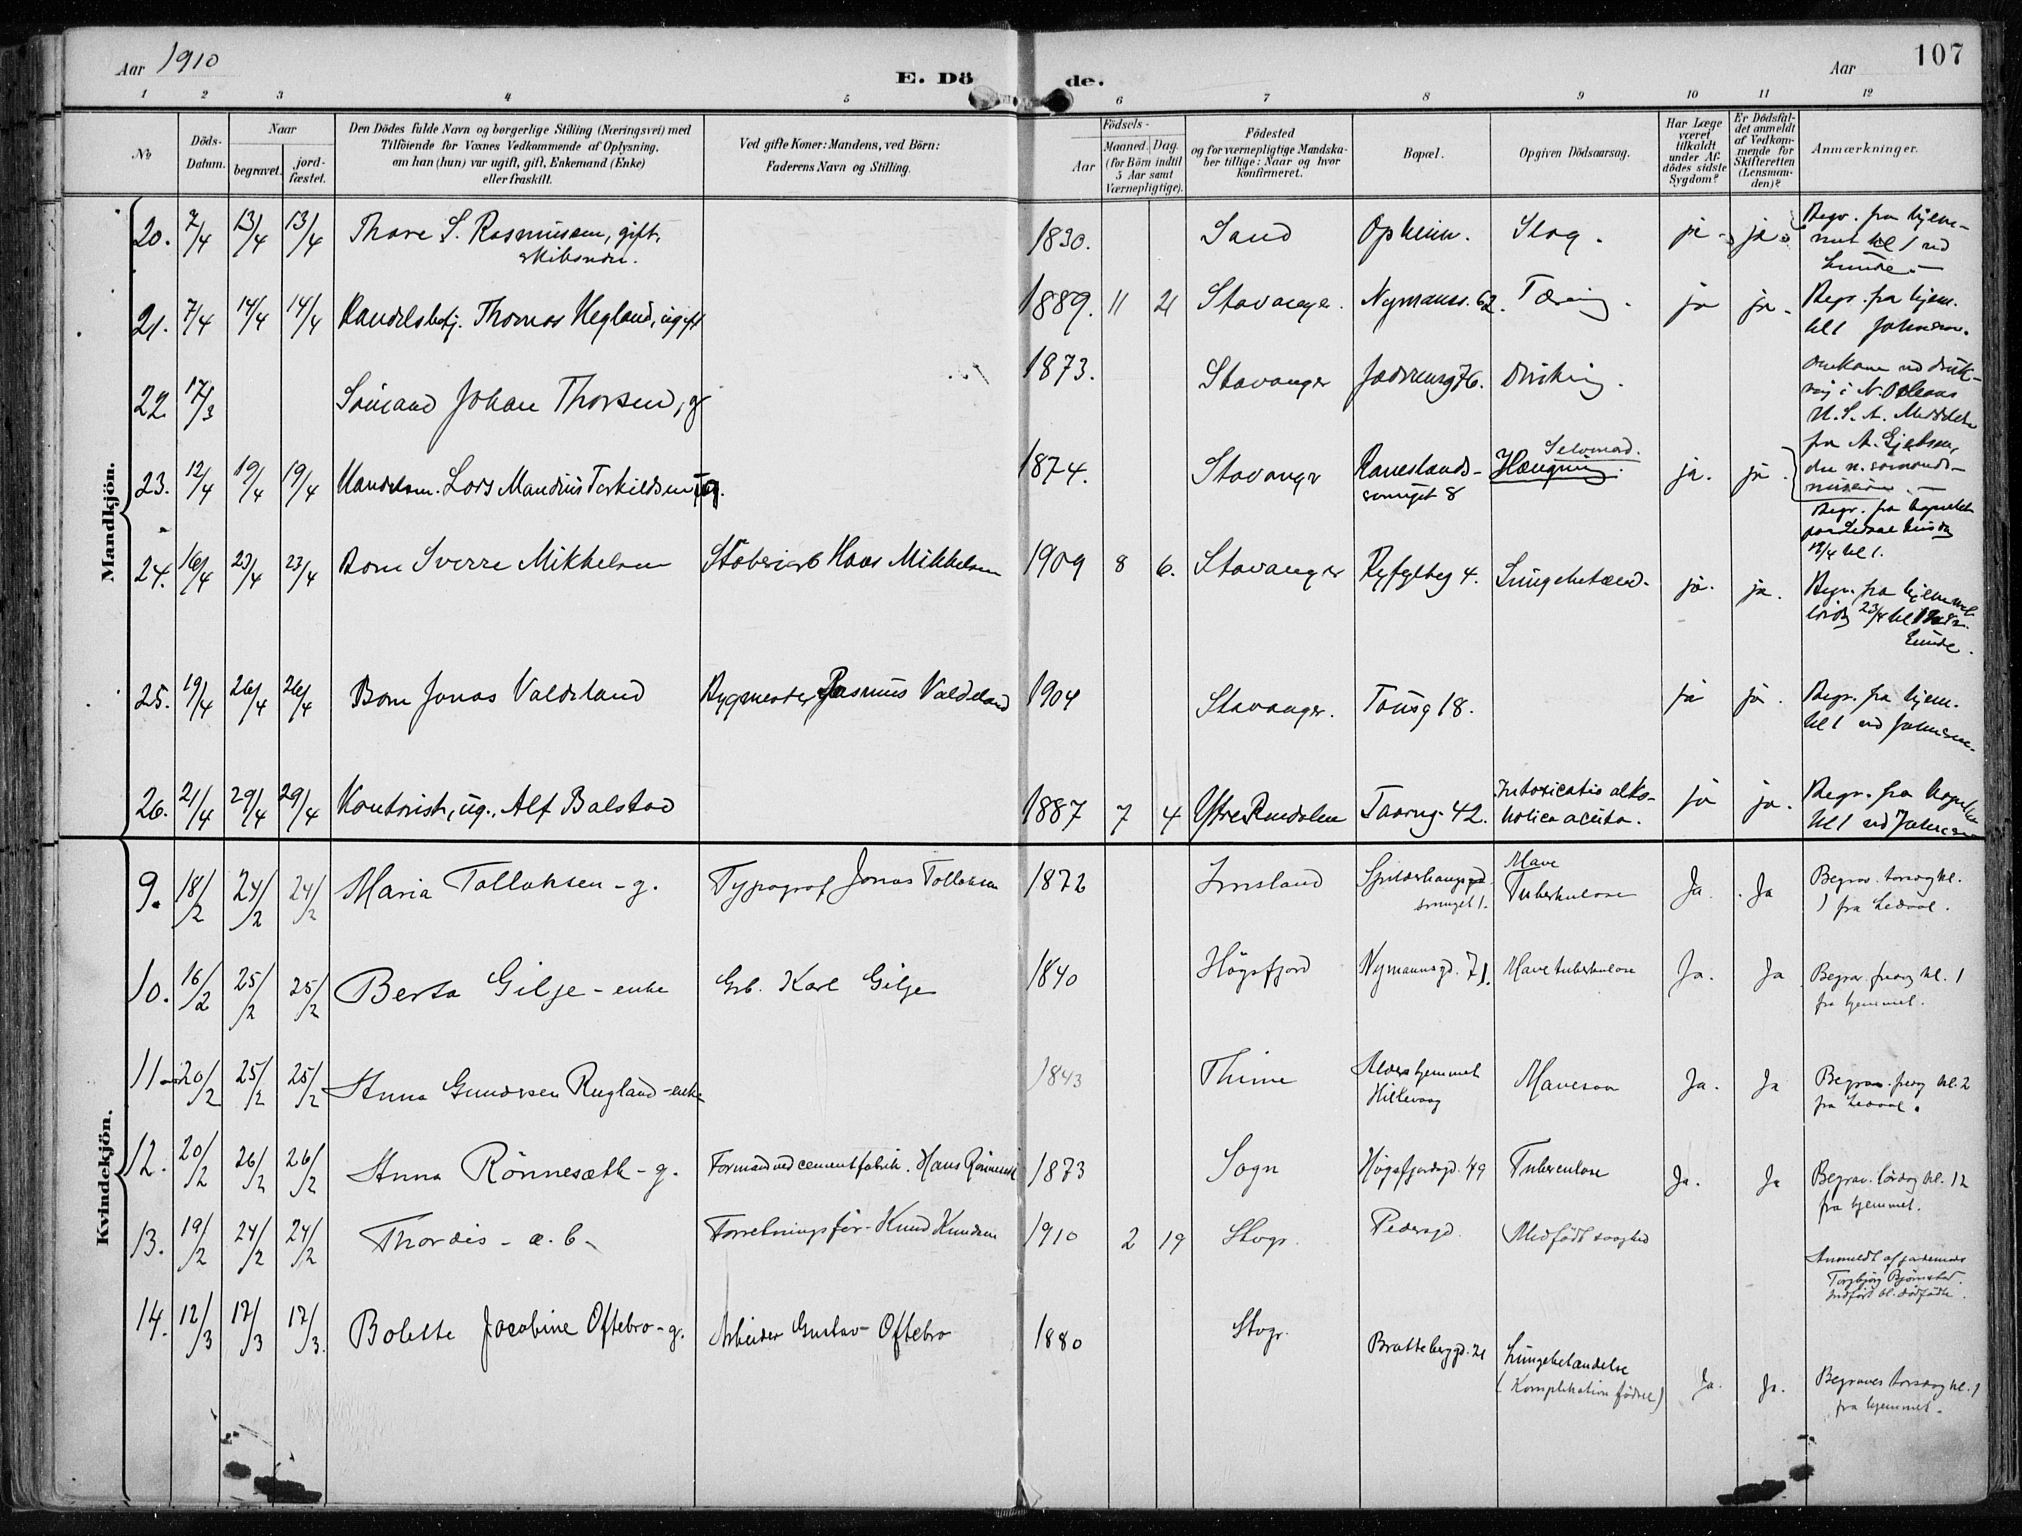 Aar 1910
E. Dö de.
Aar
107
1 2 3 4 5 6 7 8 9 10 11 12
No
Döds-Datum.
Naar
begravet.
jord-fæstet.
Den Dödes fulde Navn og borgerlige Stilling (Næringsvei) med
Tilföiende for Voxnes Vedkommende af Oplysning,
om han (hun) var ugift, gift, Enkemand (Enke)
eller fraskilt.
Ved gifte Koner: Mandens, ved Börn:
Faderens Navn og Stilling.
Födsels-
Aar
Maaned. Dag.
(for Börn indtil
5 Aar samt
Værnepligtige).
Födested
og for værnepligtige Mandska-
ber tillige: Naar og hvor
konfirmeret.
Bopæl.
Opgiven Dödsaarsag.
Har Læge
været
tilkaldt
under Af-
dödes sidste
Sygdom?
Er Dödsfal-
det anmeldt
af Vedkom-
mende for
Skifteretten
(Lensman-
den)?
Anmærkninger.
Mandkjön.
20. 7/4 13/4 13/4 Thore S. Rasmussen, gift, 1830. Sand Opheim. Slag. ja ja Begr. fra hjem-
met kl 1 ved
Lunde.
21. 7/4 14/4 14/4 Handelsbetj. Thomas Hegland, ugift 1889. 11 21 Stavanger Nymanns. 62. Tæring. ja ja. Begr. fra hjem.
kl 1 Johnsen.
22. 17/3 Sömand Johan Thorsen, g 1873. Stavanger Jædrensg 76. Drukning. omkom ved druk-
ning i N. Orleans
U.S.A. Meddelt
fra
23. 12/4 19/4 19/4 Handelsm. Lars Mandius Torkildsen, g. 1874. Stavanger smuget 8 Selvmord.
Hængning. ja. ja. Begr. fra kapellet
19/4 kl 1.
24. 16/4 23/4 23/4 Barn Sverre Mikkelsen Hans Mikkelsen 1909 8 6. Stavanger Ryfylkeg 4. Lungebetænd. ja. ja. Begr. fra hjemmet
lördag 23/4 kl
Lunde.
25. 19/4 26/4 26/4 Barn Jonas Valdeland Bygmester Rasmus Valdeland 1904 Stavanger. Tousg 18. ja ja. Begr. fra hjem.
kl 1 ved Johnsen.
26. 21/4 29/4 29/4 Kontorist, ug., Alf Balstad 1887 7 4 Ytre Rendalen Taarng. 42. Intoxicatio alko-
holica acuta. ja ja. Begr. fra kapellet
kl 1 ved Johnsen
Kvindekjön.
9. 18/2 24/2 24/2 Maria Tollaksen - g. Typograf Jonas Tollaksen 1872 Imsland Spilderhaugsgd.
smuget 1. Mave
Tuberkulose Ja. Ja Begrav. torsdag kl.
1 fra Ledaal.
10. 16/2 25/2 25/2 Berta Gilje - enke Grb. Karl Gilje 1840 Högsfjord Nymannsgd. 71. Mave tuberkulose Ja. Ja Begrav. fredag kl. 1
fra hjemmet.
11 20/2 25/2 25/2 Anna Gundersen Rugland - enke 1843 Thime Alders hjemmet
Hillevaag Mavesaar Ja. Ja Begrav. fredag kl. 2
fra Ledaal.
12. 20/2 26/2 26/2 Anna Rönnesæth - g. Formand ved cementfabrik. Hans Rönnesæth 1873 Sogn Högsfjordgd. 49 Tuberculose Ja. Ja Begrav. lördag kl. 12
fra hjemmet.
13. 19/2 24/2 24/2 Thordis - æ. b. Forretningsför. Knud Knudsen 1910 2 19 Stvgr. Pedersgd. Medfödt svaghed Anmeldt af jordemor
Torgbjörg Bjørnstad.
Indfört bl. dödfödte.
14. 12/3 17/3 17/3. Bolette Jacobine Oftebro - g. Arbeider Gustav Oftebro 1880 Stvgr. Brattebergd. 21 Lungebetændelse
(Komplikation födsel) Ja. Ja. Begraves torsdag kl. 1
fra hjemmet.